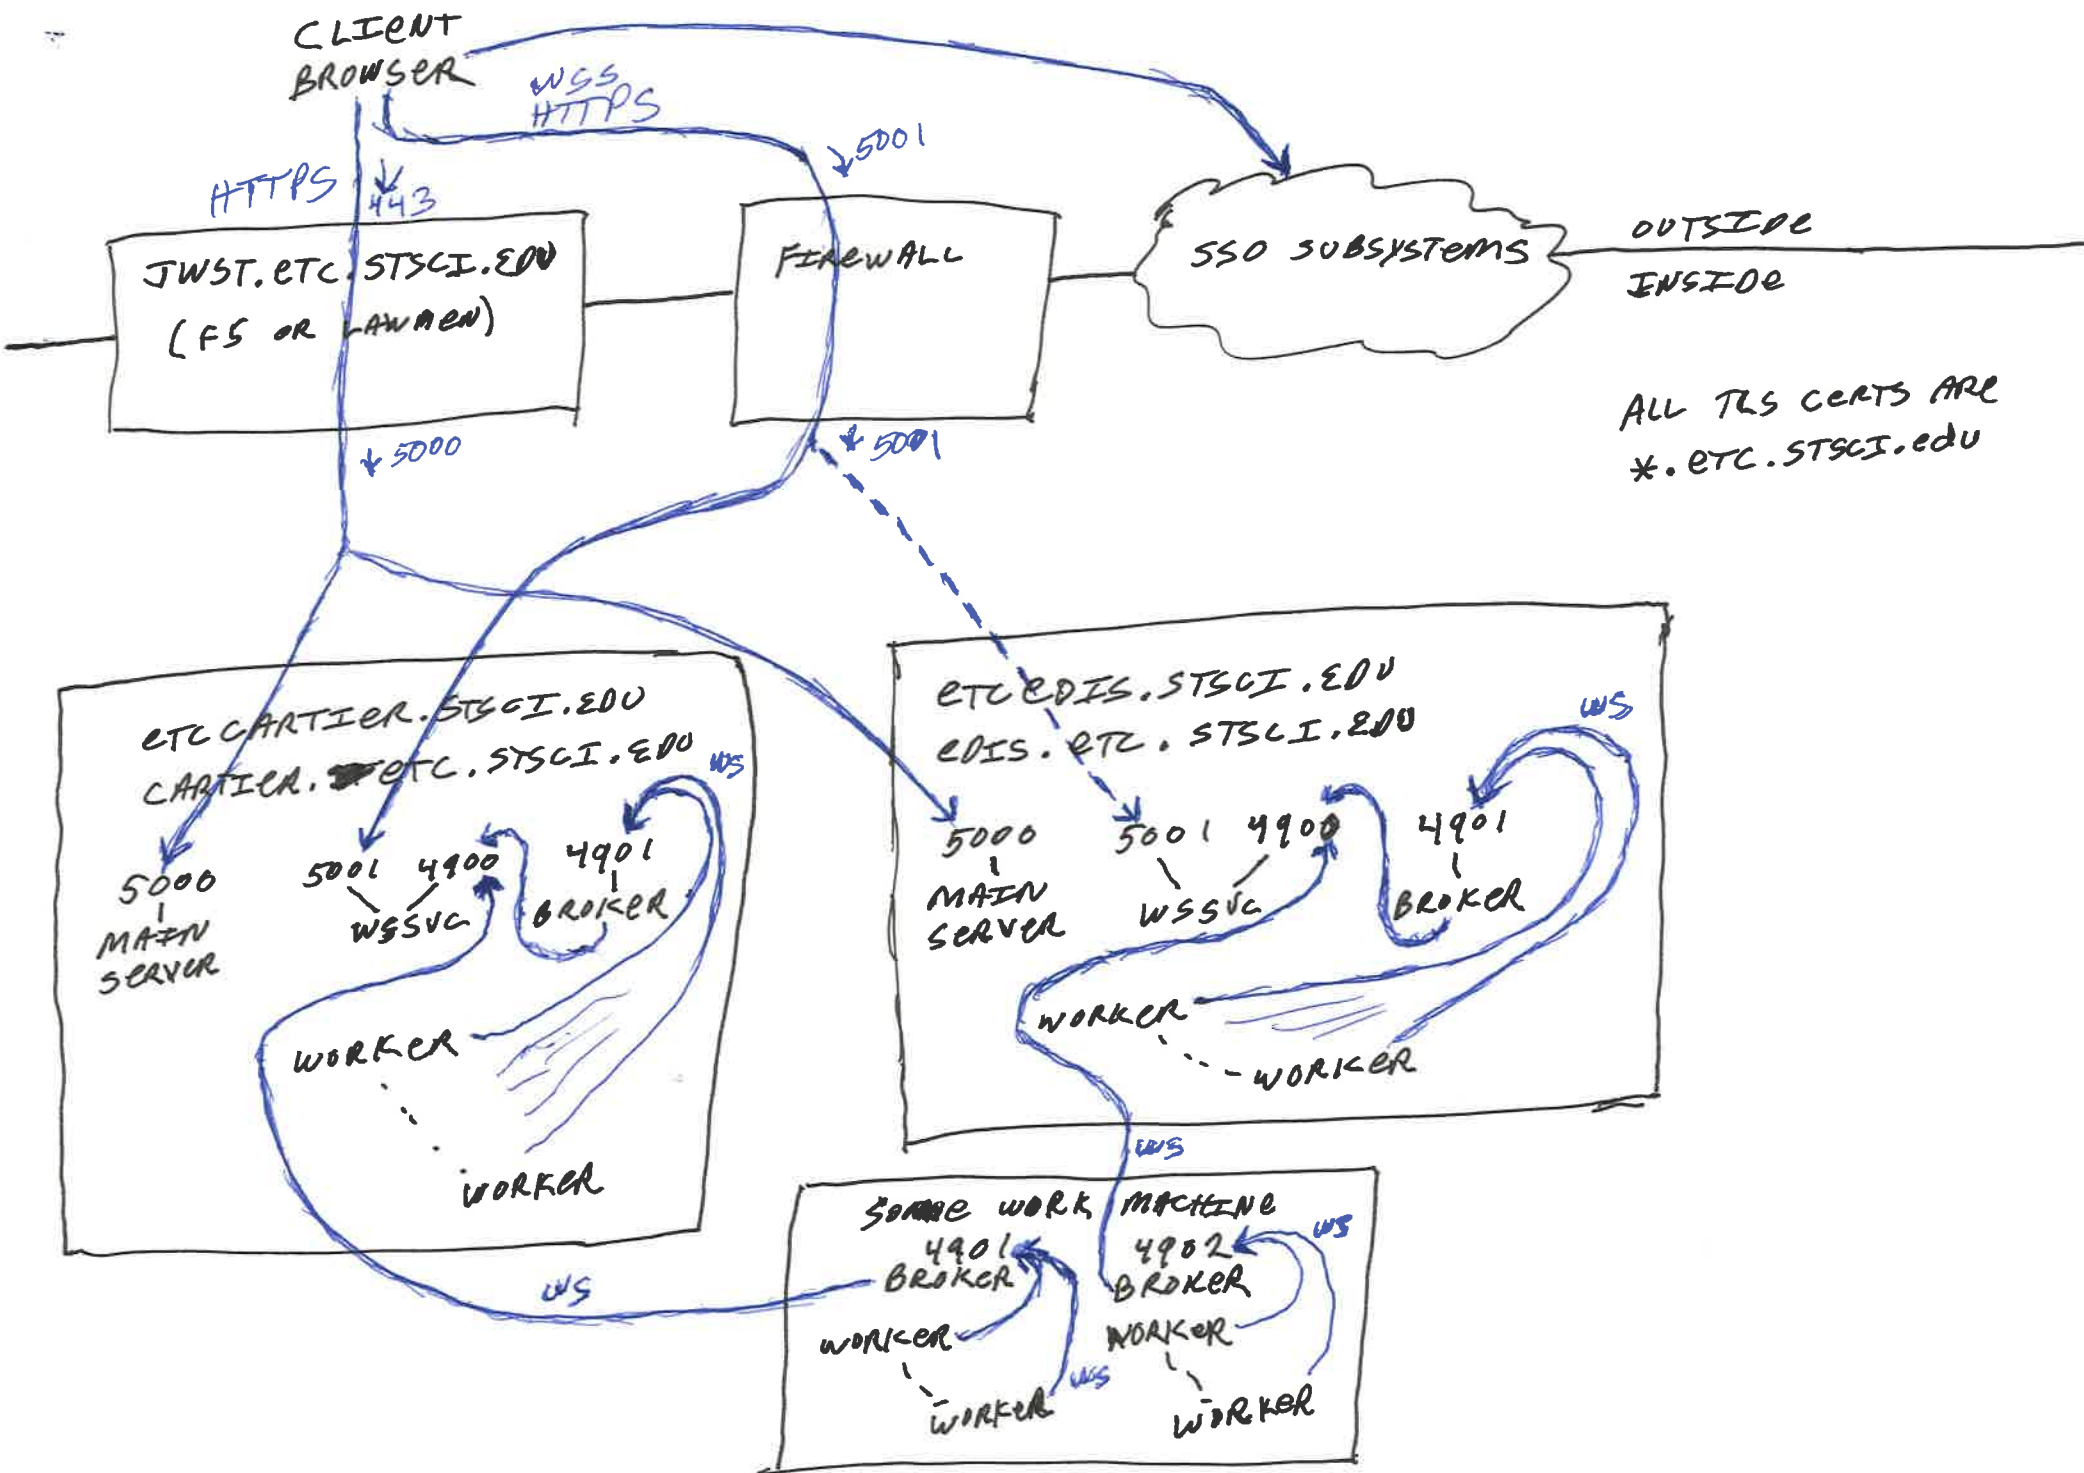 CLIENT
BROWSER
WSS
HTTPS
↓5001
HTTPS
↓
443
JWST.ETC.STSCI.EDU
(F5 OR LAWMEN)
FIREWALL
SSO SUBSYSTEMS
OUTSIDE
INSIDE
ALL TLS CERTS ARE
*.ETC.STSCI.edu
↓ 5000
↓ 5001
ETCCARTIER.STSCI.EDU
CARTIER.ETC.STSCI.EDU
WS
5000
MAIN
SERVER
5001 4900
WSSVC
4901
BROKER
WORKER
WORKER
ETCEDIS.STSCI.EDU
EDIS.ETC.STSCI.EDU
WS
5000
MAIN
SERVER
5001 4900
WSSVC
4901
BROKER
WORKER
WORKER
WS
WS
SOME WORK MACHINE
4901
BROKER
WORKER
WORKER
WS
4902
BROKER
WORKER
WORKER
WS